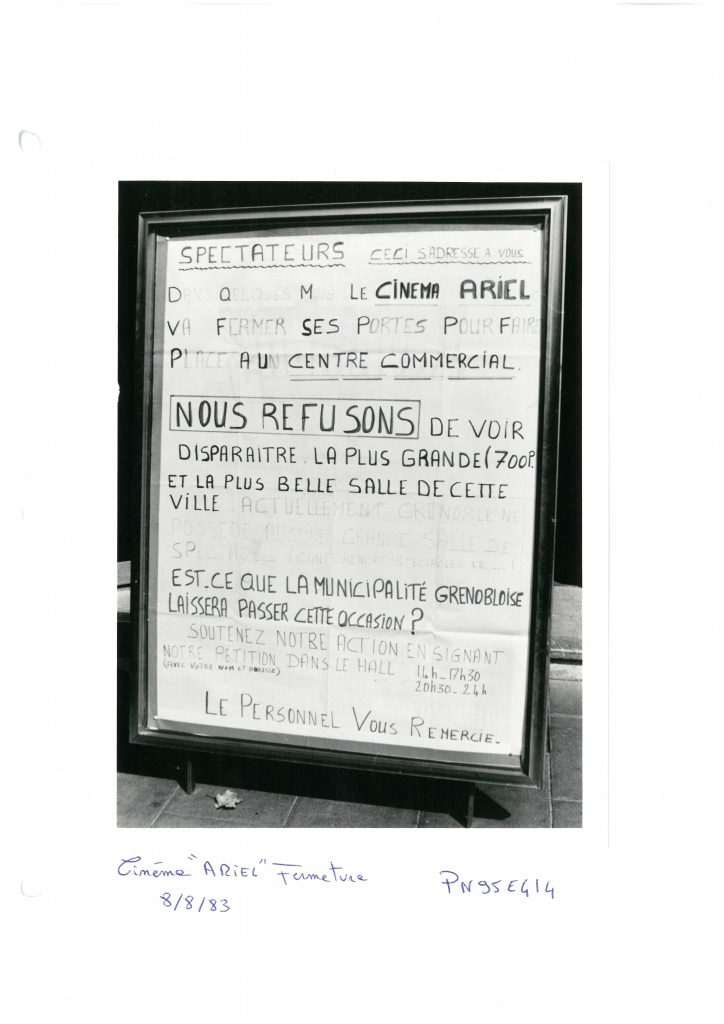 SPECTATEURS CECI S'ADRESSE A VOUS
DANS QELQUES MOIS LE CINEMA ARIEL
VA FERMER SES PORTES POUR FAIRE
PLACE A UN CENTRE COMMERCIAL.
NOUS REFUSONS DE VOIR
DISPARAITRE. LA PLUS GRANDE (700P.
ET LA PLUS BELLE SALLE DE CETTE
VILLE (ACTUELLEMENT GRENOBLE NE
POSSEDE AUCUNE GRANDE SALLE DE
SPECTACLES (CONFERENCES SPECTACLES ETC...)
EST-CE QUE LA MUNICIPALITÉ GRENOBLOISE
LAISSERA PASSER CETTE OCCASION ?
SOUTENEZ NOTRE ACTION EN SIGNANT
NOTRE PETITION DANS LE HALL 14h-17h30
(AVEC VOTRE NOM ET ADRESSE) 20h30-24h
LE PERSONNEL VOUS REMERCIE.
Cinéma "ARIEL" Fermeture PN95E414
8/8/83